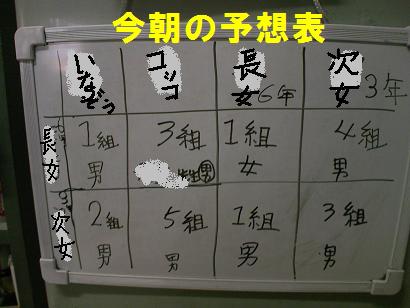 今朝の予想表
いなぞう コッコ 長女 6年 次女 3年
長女 1組 3組 1組 4組
男 先生男 女 男
次女 2組 5組 1組 3組
男 男 男 男